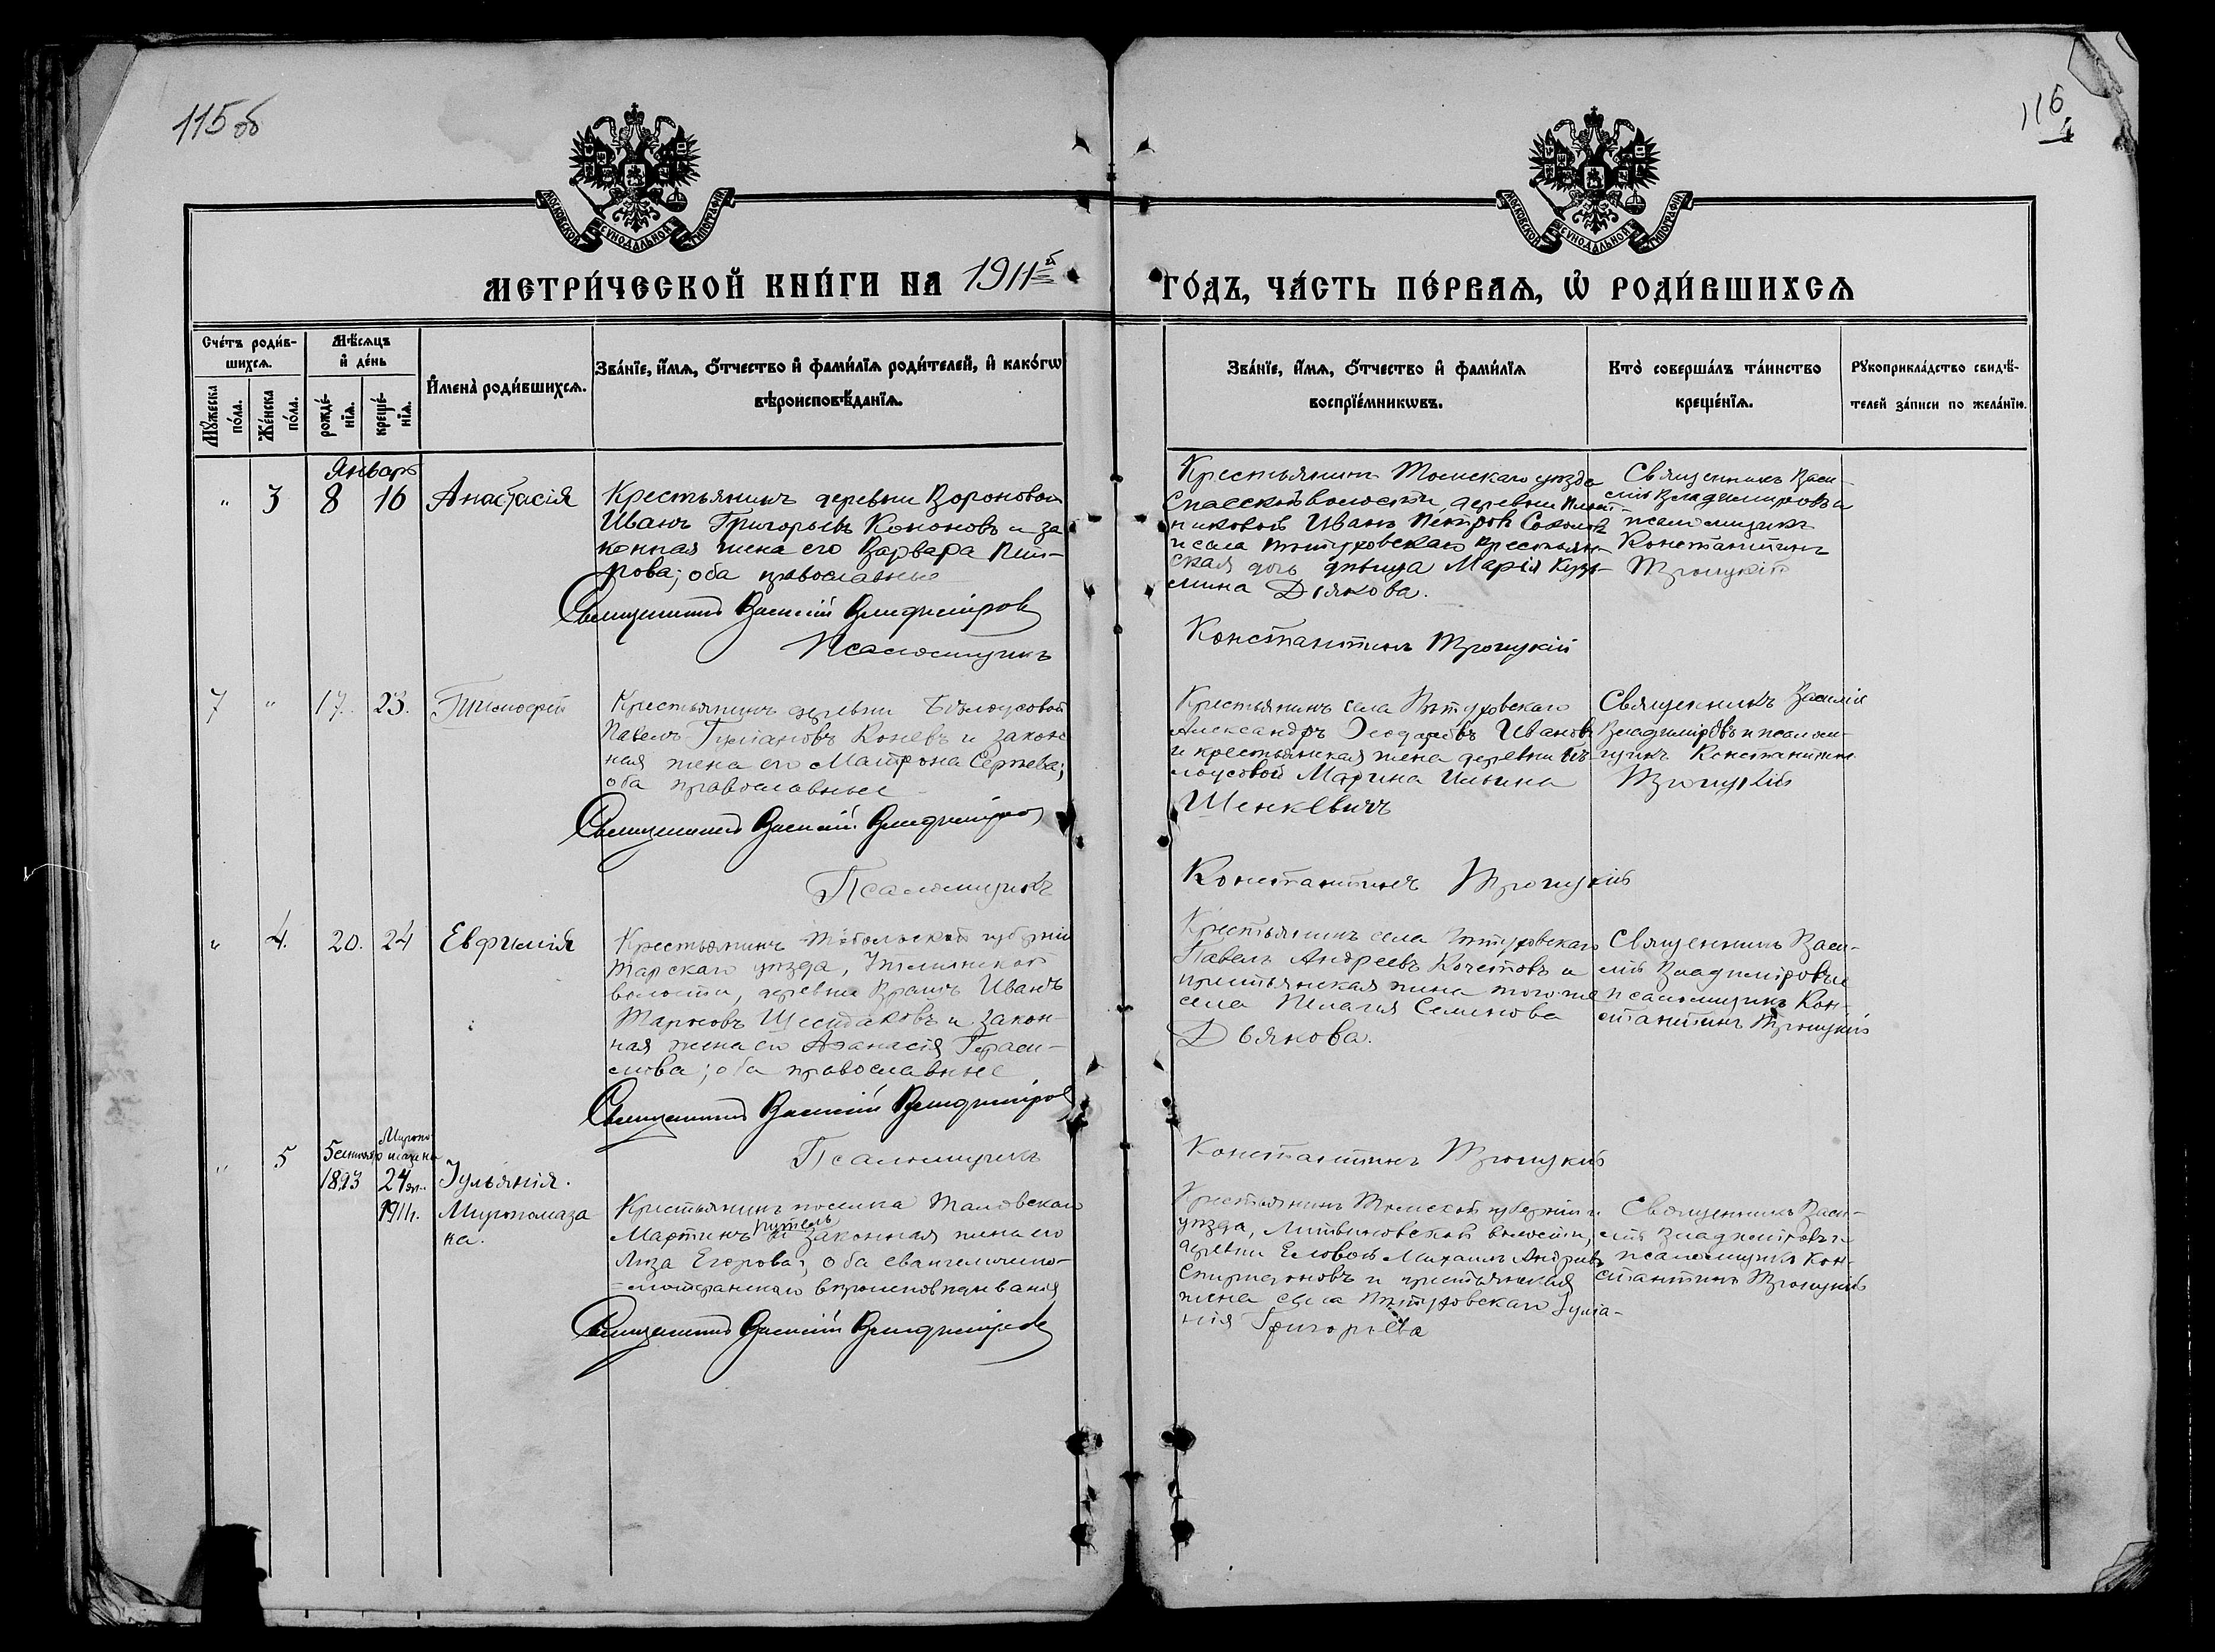 115 об
116
4
МОСКОВСКОЙ СѴНОДАЛЬНОЙ ТИПОГРАФІИ
МОСКОВСКОЙ СѴНОДАЛЬНОЙ ТИПОГРАФІИ
МЕТРИ́ЧЕСКОЙ КНИ́ГИ НА 1911й
ГО́ДЪ, ЧА́СТЬ ПЕ́РВАѦ, Ѡ РОДИ́ВШИХСѦ
Сче́тъ роди́в-
шихсѧ.
Мꙋжеска по́ла.
Же́нска по́ла.
Мѣ́сѧцъ и де́нь
рожде́-нїѧ.
креще́-нїѧ.
Имена̀ роди́вшихсѧ.
Зва́нїе, и́мѧ, о́тчество и фами́лїѧ роди́телей, и како́гѡ
вѣроисповѣ́данїѧ.
Зва́нїе, и́мѧ, о́тчество и фами́лїѧ
воспрїе́мникѡвъ.
Кто̀ соверша́лъ та́инство
креще́нїѧ.
Рꙋкоприкла́дство свидѣ́-
телей за́писи по жела́нїю.
Январь
" 3 8 16 Анастасія
Крестьянинъ деревни Вороновой
Иванъ Григорьевъ Кононовъ и за
конная жена его Варвара Пет-
рова; оба православные
Священникъ Василій Владиміровъ
Псаломщикъ
Крестьянинъ Томскаго уѣзда
Спасской волости, деревни
Иванъ Петровъ Соколовъ
и села Пѣтуховскаго крестьян-
ская дочь дѣвица Марія Кузь-
мина Дьякова.
Константинъ Троицкій
Священникъ Васи-
лій Владиміровъ и
псаломщикъ
Константинъ
Троицкій
7 " 17. 23. Тимофей
Крестьянинъ деревни Бѣлоусовой
Павелъ Гуліановъ Коневъ и закон
ная жена его Матрона Сергѣева;
оба православные
Священникъ Василій Владиміровъ
Псаломщикъ
Крестьянинъ села Пѣтуховскаго
Александръ Ѳеодоровъ Ивановъ
и крестьянская жена деревни Бѣ-
лоусовой Марина Ильина
Шенкевичъ
Константинъ Троицкій
Священникъ Василій
Владиміровъ и псалом-
щикъ Константинъ
Троицкій
" 4. 20. 24 Евфимія
Крестьянинъ Тобольской губерніи
Тарскаго уѣзда,
волости, деревни Иванъ
Шестаковъ и закон-
ная жена его Аѳанасія Гераси-
мова; оба православные
Священникъ Василій Владиміровъ
Псаломщикъ
Крестьянинъ села Пѣтуховскаго
Павелъ Андреевъ Кочетовъ и
крестьянская жена того же
села Пелагія Семенова
Дьякова.
Константинъ Троицкій
Священникъ Васи-
лій Владиміровъ и
псаломщикъ Кон-
стантинъ Троицкій
" 5
1893
24
1911.
Іульянія.
Мѵропомаза
на.
Крестьянинъ поселка Таловскаго
Мартинъ и законная жена его
Лиза Егорова; оба евангелическо-
лютеранскаго вѣроисповѣданія
Священникъ Василій Владиміровъ
Крестьянинъ Томской губерніи и
уѣзда, волости,
деревни Еловой Михаилъ Андреевъ
Спиридоновъ и крестьянская
жена села Пѣтуховскаго Іуліа-
нія Григорьева
Священникъ Васи-
лій Владиміровъ и
псаломщикъ Кон-
стантинъ Троицкій